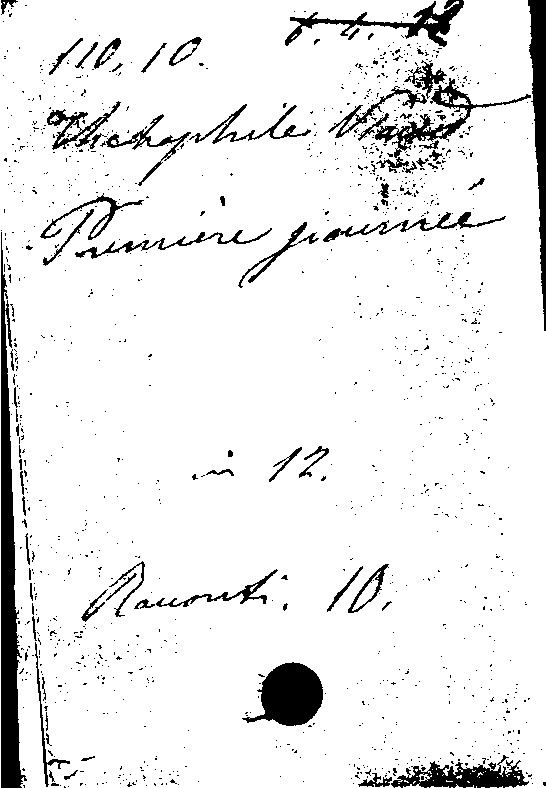 110. 10. 6. 4. 12
Théophile Viaud
Première journée
in 12.
Raconti. 10.